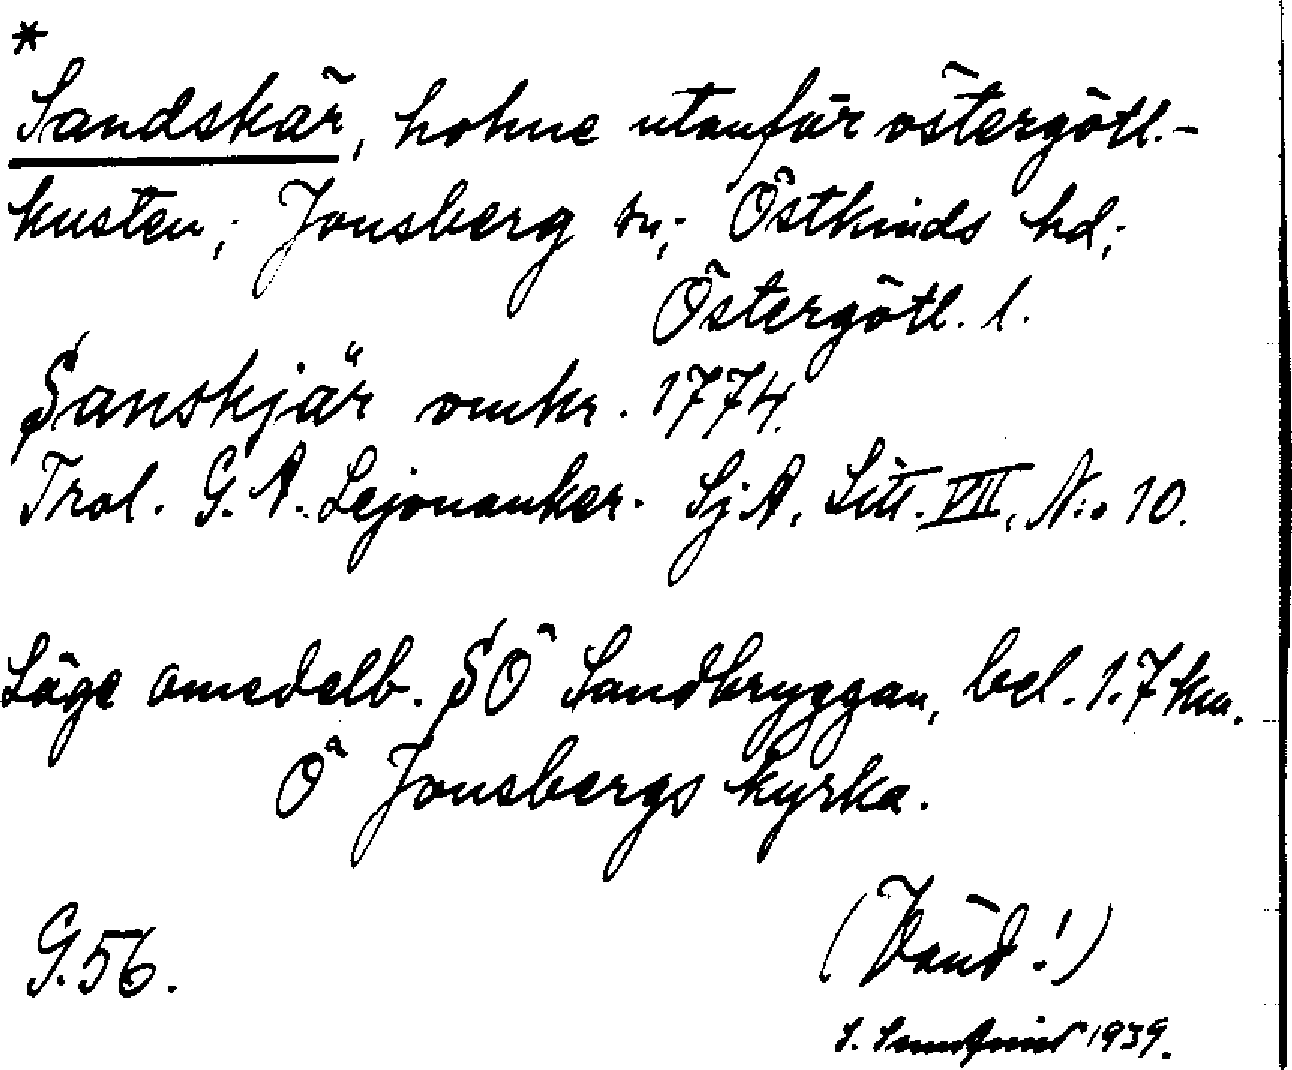 *
Sandskär, holme utanför östergötl.-
kusten; Jonsberg sn; Östkinds hd;
Östergötl. l.
Sanskjär omkr. 1774.
Trol. G. A. Lejonanker. SjA, Litt. VII, N:o 10.
Läge omedelb. SO Sandbryggan, bel. 1.7 km.
O Jonsbergs kyrka.
G. 56.
(Vänd!)
S. 1939.